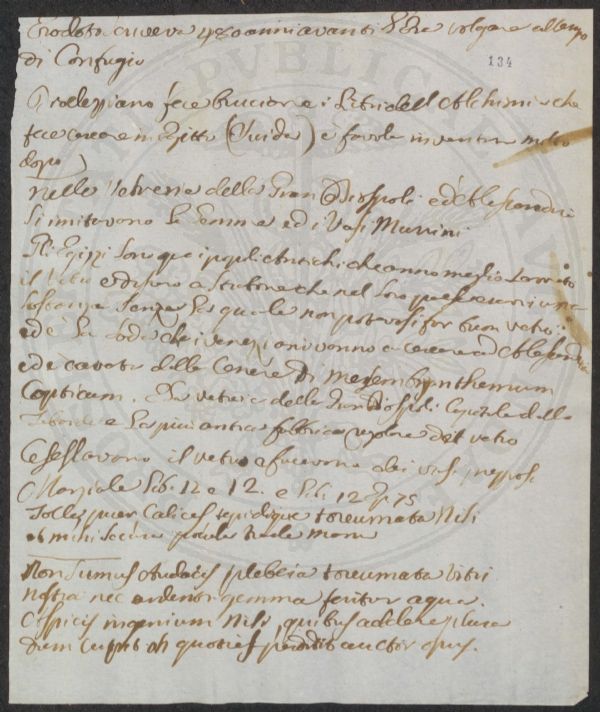 Erodoto viveva 450 anni avanti l'Era volgare al tempo
di Confugio
134
Diocleziano fece bruciare i Libri dell'Alchimia che
fece cercare in Egitto (Suida) è favola inventata molto
dopo
Nelle Vetrerie della Gran Diospoli ed Alesandria
si imitavono le Gemme ed i Vasi Murrini
Gli Egizzi sono que i popoli Antichi che anno meglio lavorato
il Vetro e dissero a Strabone che nel loro paese eravi una
sostanza senza la quale non potevasi far buon vetro:
ed è la Soda che i veneziani vanno a cercare ad Alesandria
ed è cavata dalla Cenere di Mesembryanthemum
Copticum. La vetreria della Gran Diospoli Capitale della
Tebaide e la più antica fabbrica regolare del vetro
Cesellavono il vetro e facevono dei vasi
Marziale Lib. 11 e 12. e Lib. 12 Ep. 75
Tolle puer Calices tepidique toreumata Nili
et mihi secura pocula trade manu
Non sumus Audacis plebeia toreumata Vitri
nostra nec ardenti gemma feritur aqua.
Aspicis ingenium Nili, quibus addere plura
dum cupit ah quoties perdidit auctor opus.